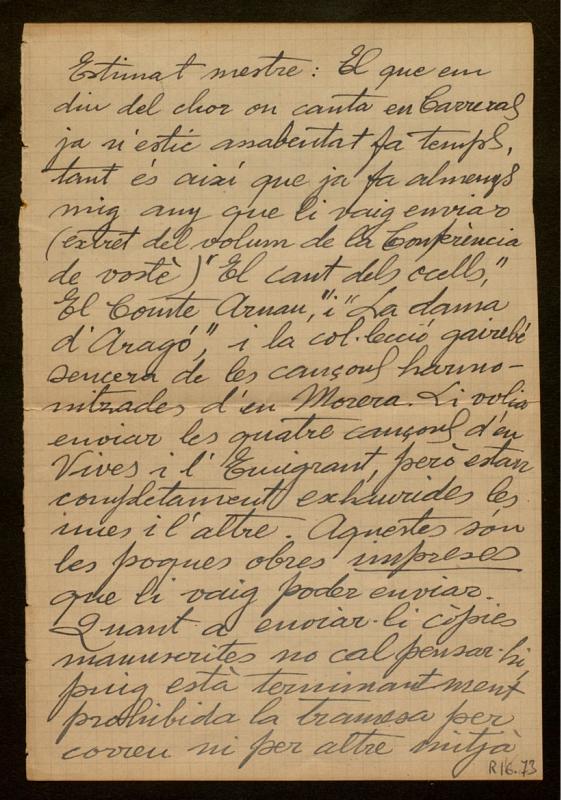 Estimat mestre: El que em
diu del chor on canta en Carreras
ja n'estic assabentat fa temps,
tant és així que ja fa almenys
mig any que li vaig enviar
(extret del volum de la Conferència
de vostè) "El cant dels ocells,"
El Comte Arnau," i "La dama
d'Aragó", i la col·lecció gairebé
sencera de les cançons harmo-
nitzades d'en Morera. Li volia
enviar les quatre cançons d'en
Vives i l'Emigrant, però estan
completament exhaurides les
unes i l'altre. Aquestes són
les poques obres impreses
que li vaig poder enviar.
Quant a enviar-li còpies
manuscrites no cal pensar-hi,
puig està terminantment
prohibida la tramesa per
correu ni per altre mitjà
R16.73